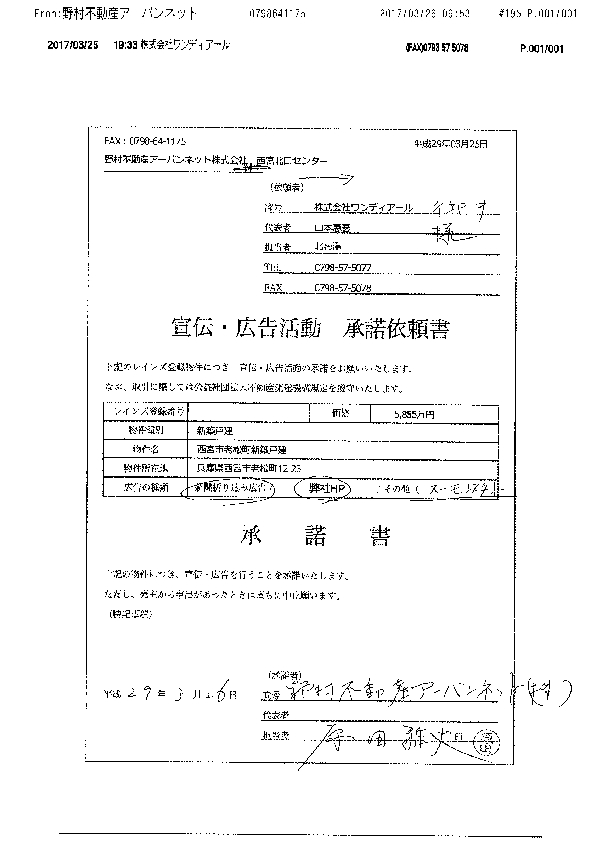 From:野村不動産アーバンネット 0798641175 2017/03/26 09:53 #195 P.001/001
2017/03/25 19:33 株式会社ワンディアール (FAX)0798 57 5078 P.001/001
FAX:0798-64-1175 平成29年03月25日
野村不動産アーバンネット株式会社 西宮北口センター
(依頼者)
株式会社ワンディアール
代表者
担当者
TEL 0798-57-5077
FAX 0798-57-5078
様
宣伝・広告活動 承諾依頼書
下記のレインズ登録物件につき 宣伝・広告活動の承諾をお願いいたします。
なお、取引に際しては公益社団法人不動産流通機構規定を遵守いたします。
レインズ登録番号 価格 5,855万円
物件種別 新築戸建
物件名 西宮市老松町新築戸建
物件所在地 兵庫県西宮市老松町12-23
広告の種類 新聞折り込み広告 弊社HP その他(スーモ
承 諾 書
上記の物件につき、宣伝・広告を行うことを承諾いたします。
ただし、売主から申出があったときは直ちに中止願います。
(承諾者)
平成 29年3月26日 野村不動産アーバンネット(株)
代表者
担当者